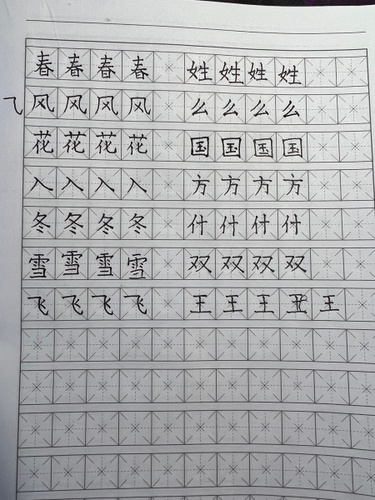 春春春春 姓姓姓姓
飞风风风风 么么么么
花花花花 国国国国
入入入入 方方方方
冬冬冬冬 什什什什
雪雪雪雪 双双双双
飞飞飞飞 王王王王王